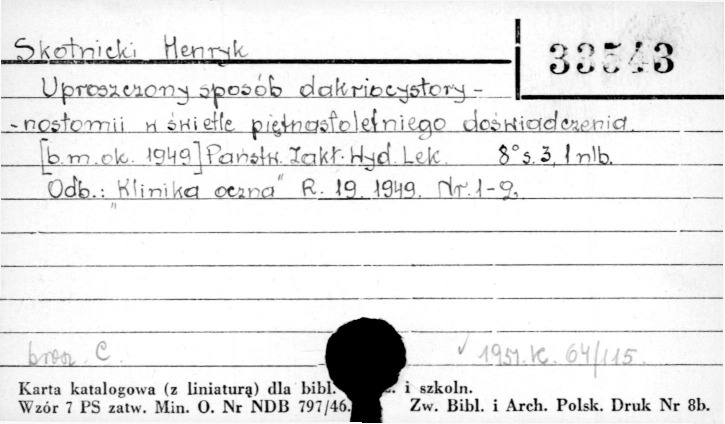 Skotnicki Henryk
33543
Uproszczony sposób dakriocystory-
-nostomii w świetle piętnastoletniego doświadczenia.
[b.m.ok. 1949] Państw. Zakł. Wyd. Lek. 8° s. 3, 1 nlb.
Odb.: "Klinika oczna" R. 19. 1949. Nr. 1-2.
brosz. C. ✓ 1951. K. 64/115.
Karta katalogowa (z liniaturą) dla bibl. i szkoln.
Wzór 7 PS zatw. Min. O. Nr NDB 797/46. Zw. Bibl. i Arch. Polsk. Druk Nr 8b.